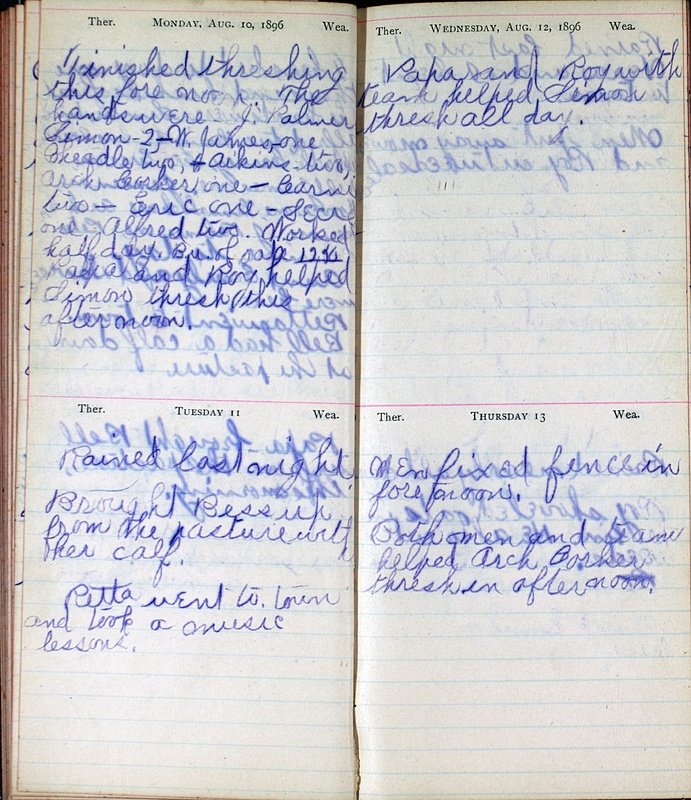 Ther. MONDAY, AUG. 10, 1896 Wea.
Finished threshing
this fore noon. The
hands were J. Palmer
Simon-2,-W. James-one
Headle two, + Atkins-two,
Arch Corker, one —
two — Eric one -
one. Alfred two. Worked
half day. Bu. of oats
Papa and Roy helped
Simon thresh this
afternoon.
TUESDAY 11
Ther. Wea.
Rained last night
Brought Bess up
from the pasture with
her calf.
Retta went to town
and took a music
lessons.
Ther. WEDNESDAY, AUG. 12, 1896 Wea.
Papa and Roy with
team helped Simon
thresh all day.
Ther. THURSDAY 13 Wea.
Men fixed fence in
forenoon.
Both men and team
helped Arch Corker
thresh in afternoon.